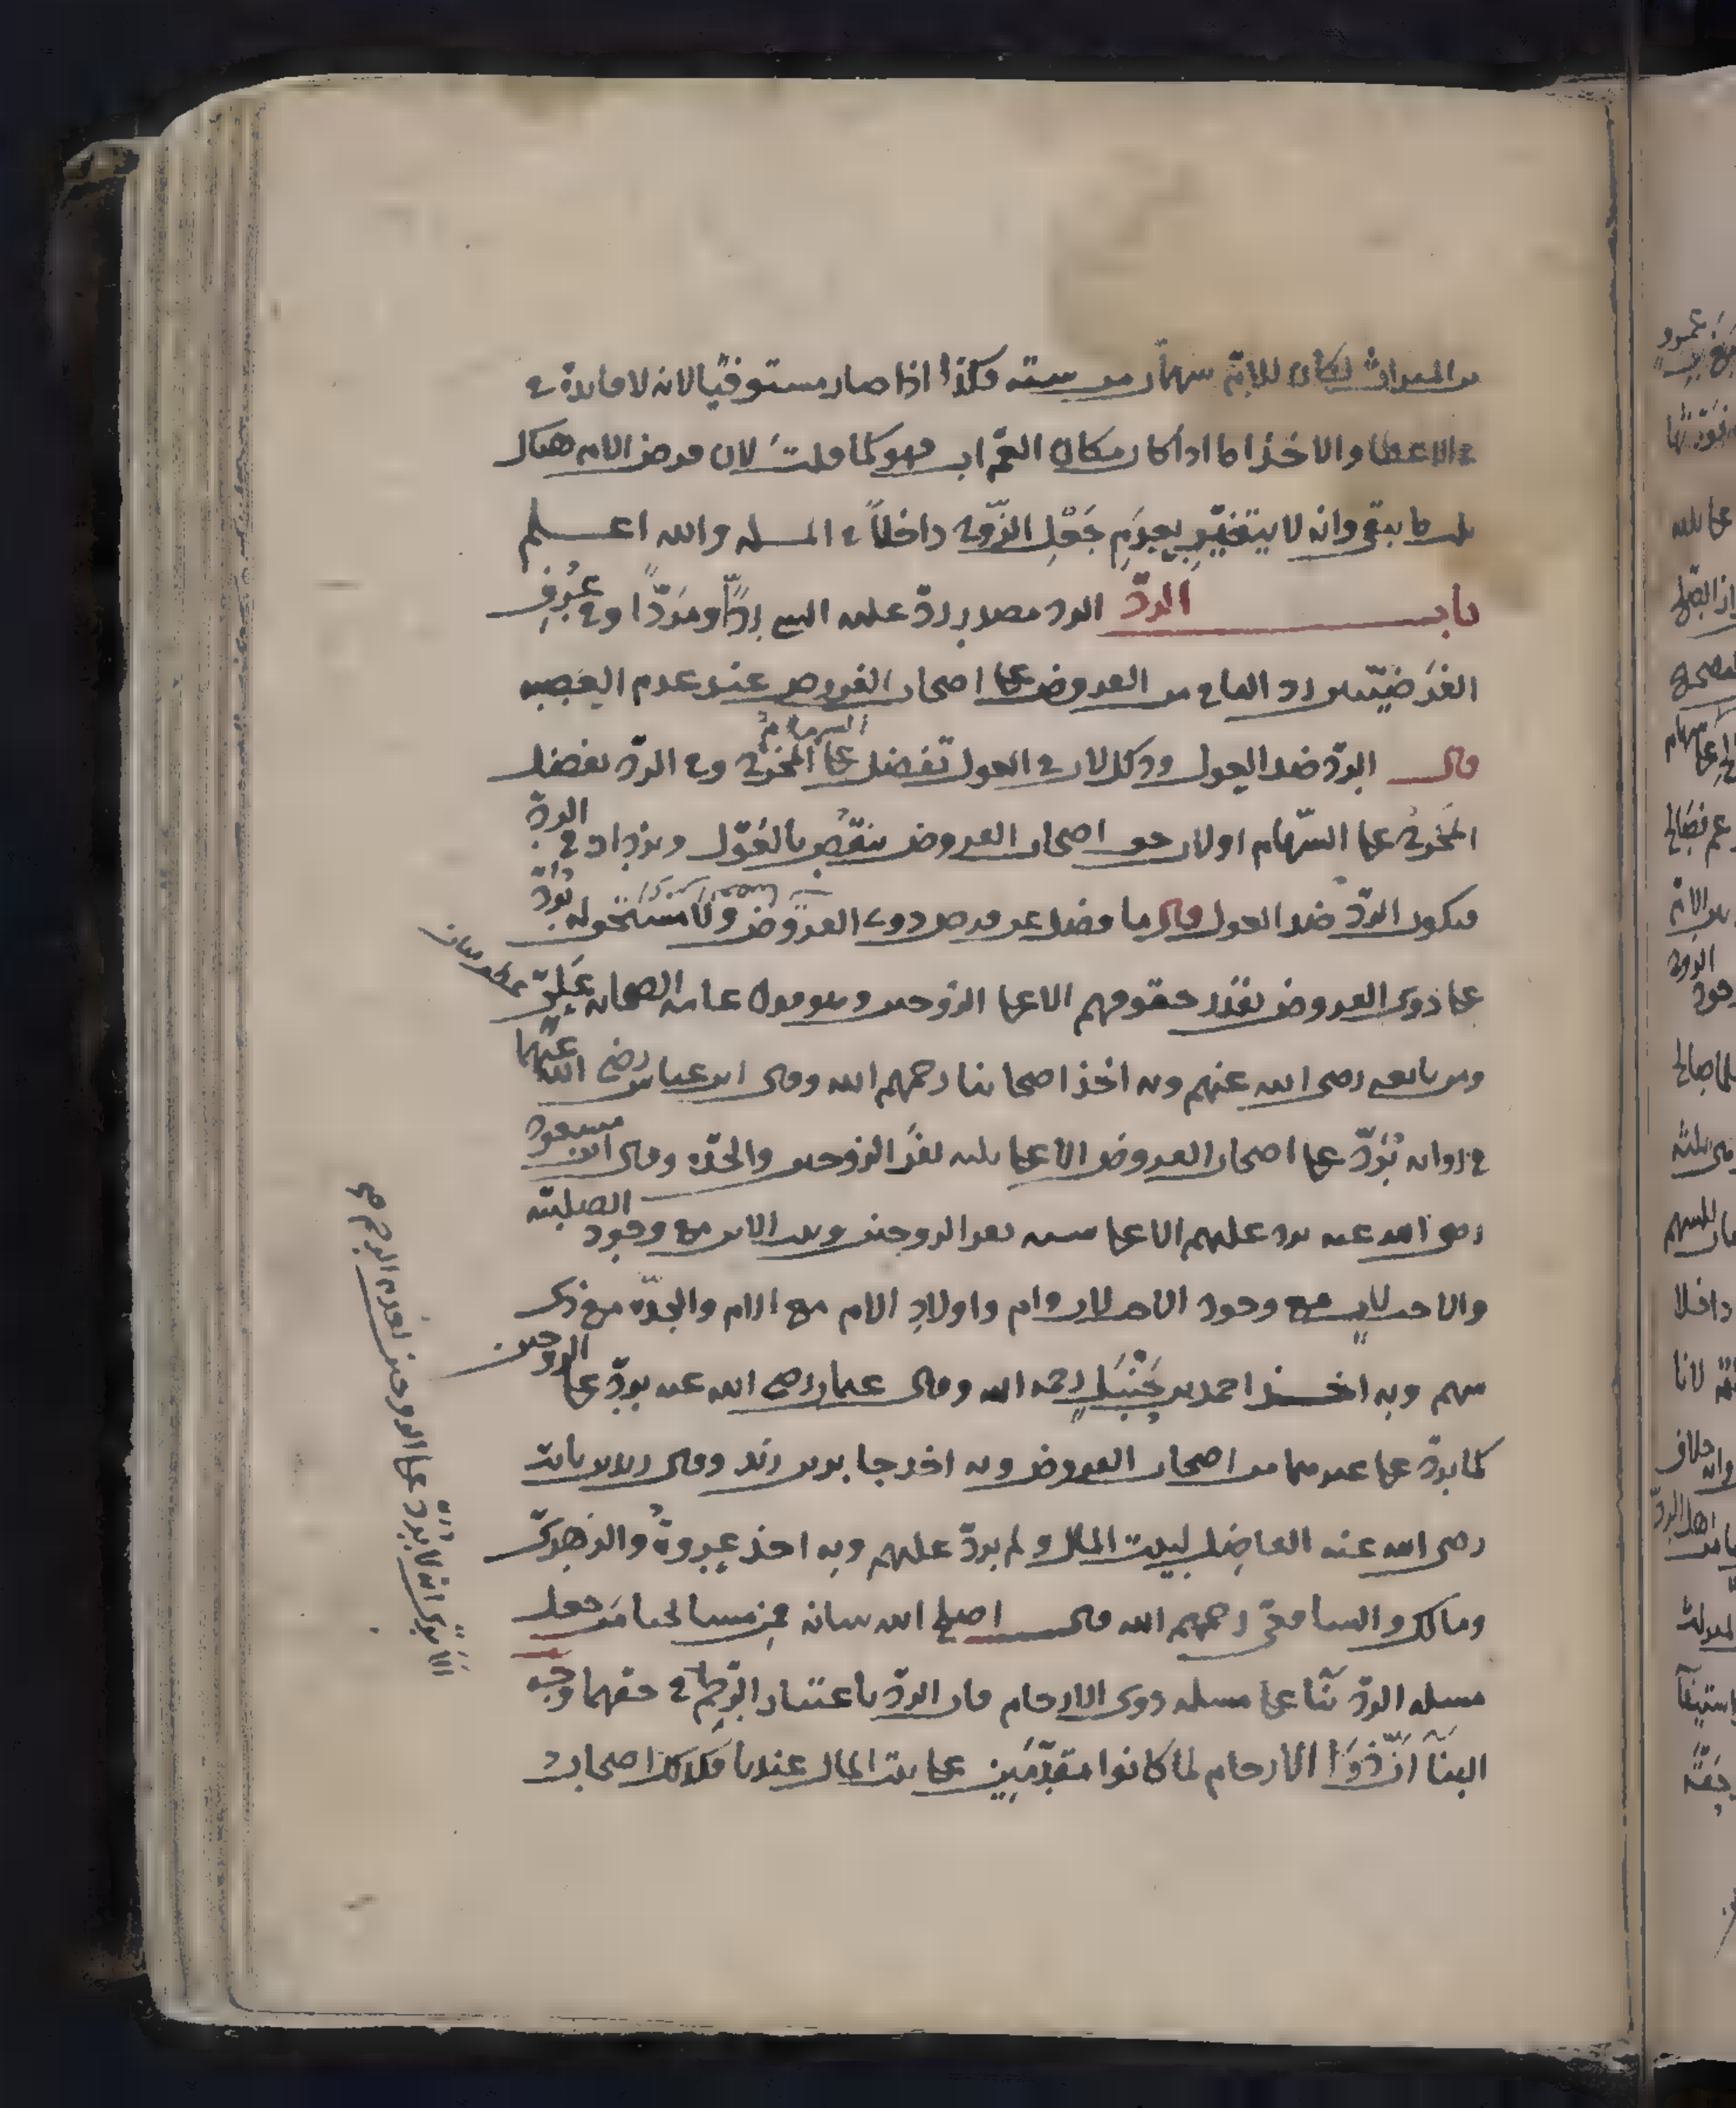 من الميراث لكان للام سهمان من ستة وكذا اذا صار مستوفيا لانه لا فايدة في
في الاعطا والاخذ اما اذا كان مكان العم اب فهو كما قلت لان فرض الام هناك
ثلث ما بقي وانه لا يتغير بعدم جعل الزوج داخلا في المسله والله اعلم
باب الردّ الرد مصدر ردّ عليه الشي ردّا ومَردّا وفي عُرف
الفَرَضيّين رد الفاضل من الفروض على اصحاب الفروض عند عدم العصبه
قال الردّ ضد العول وذلك لان في العول تفضل السهام على المخرج وفي الردّ يفضل
المخرج على السّهام او لان حق اصحاب الفروض ينقص بالعَوْل ويزداد في الردّ
فيكون الردّ ضد العول قال ما فضل عن فرض ذوي الفروض ولا مستحق له يردّ
على ذوي الفروض بقدر حقوقهم الا على الزوجين وهو قول عامه الصحابه عليّ
ومن تابعه رضي الله عنهم وبه اخذ اصحابنا رحمهم الله وقال ابن عباس رضي الله عنهما
في روايه يُردّ على اصحاب الفروض الا على ثلثه نفر الزوجين والجدّه وقال ابن مسعود
رضي الله عنه يرد عليهم الا على سته نفر الزوجين وبنت الابن مع وجود الصلبيّه
والاخت لاب مع وجود الاخت لاب وام واولاد الام مع الام والجدّه مع ذي
سهم وبه اخذ احمد بن حَنْبَل رحمه الله وقال عثمان رضي الله عنه يردّ على الزوجين
كما يردّ على غيرهما من اصحاب الفروض وبه اخذ جابر بن زيد وقال زيد بن ثابت
رضي الله عنه الفاضل لبيت المال ولم يردّ عليهم وبه اخذ عروةُ والزهريّ
ومالك والشافعي رحمهم الله قال اصلح الله شانه من مشايخنا مَن جعل
مسله الردّ بنّا على مسله ذوي الارحام فان الردّ باعتبار الرَّحِم في حقهما وجه
البنَآ انّ ذَوِي الارحام لما كانوا مقدّمين على بيت المال عندنا فكذلك اصحاب